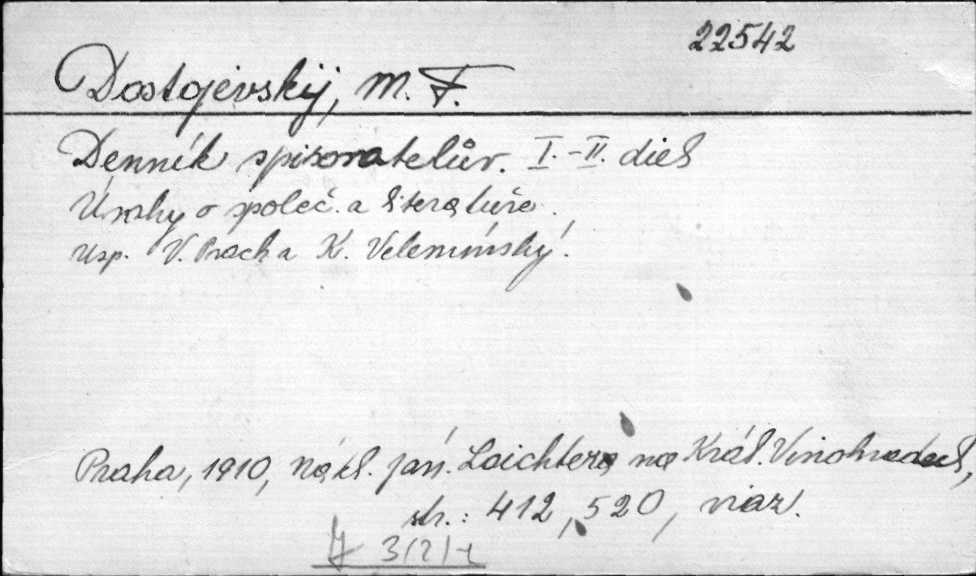 22542
Dostojevskij, M. F.
Denník spisovatelův. I.-II. diel
Úvahy o společ. a literatuře.
Usp. V. Prach a K. Velemínský.
Praha, 1910, nákl. Ján Laichtera na Král. Vinohradech,
str.: 412, 520, viaz.